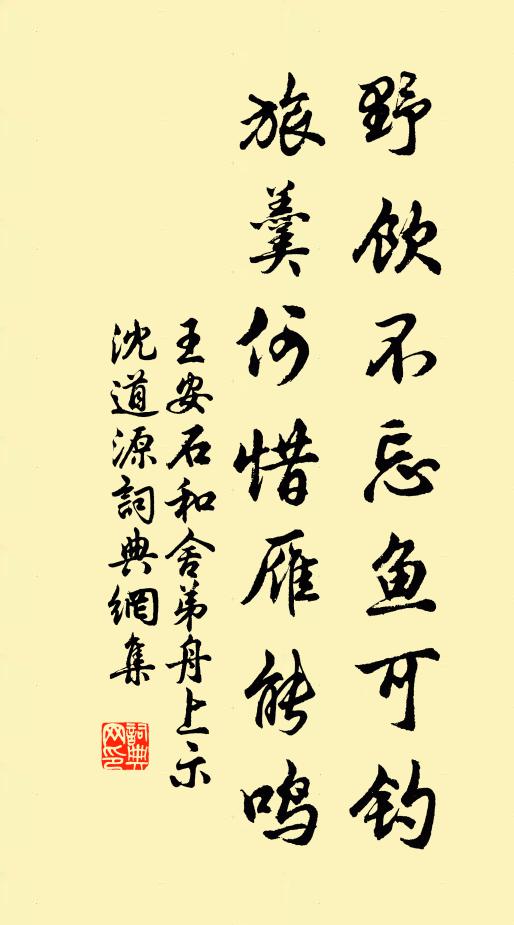 野饮不忘鱼可钓
旅羹何惜雁能鸣
王安石和舍弟舟上示
沈道源詞典網集
詞典網印